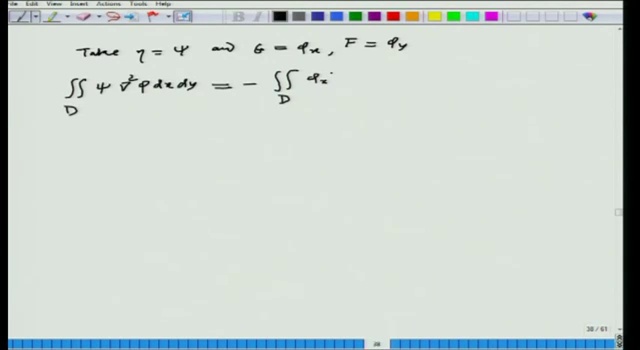 File Edit View Insert Actions Tools Help
Take η = Ψ and G = φ_x, F = φ_y
∬_D Ψ ∇²φ dx dy = - ∬_D φ_x
38 / 61
38